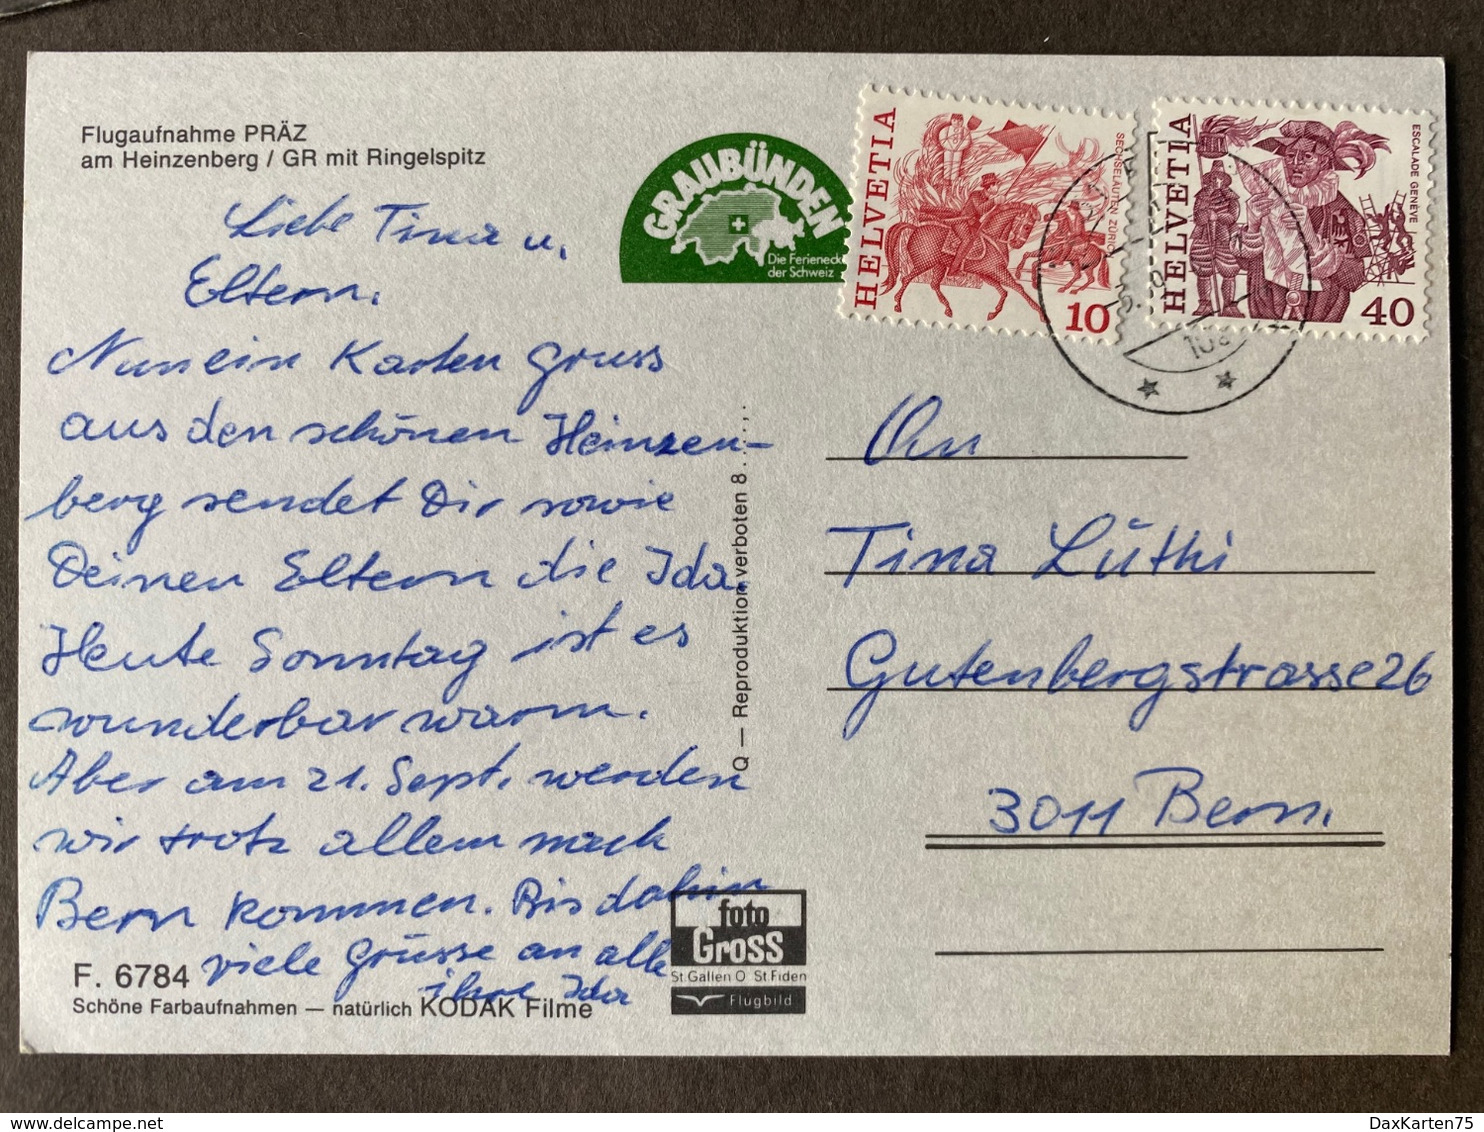 Flugaufnahme PRÄZ
am Heinzenberg / GR mit Ringelspitz
GRAUBÜNDEN
Die Ferienecke
der Schweiz
HELVETIA
SECHSELÄUTEN ZÜRICH
10
HELVETIA
ESCALADE GENÈVE
40
Liebe Tina u.
Eltern.
Nun ein Karten Gruss
aus den schönen Heinzen-
berg sendet Dir sowie
Deinen Eltern die Ida.
Heute Sonntag ist es
wunderbar warm.
Aber am 21. Sept. werden
wir trotz allem nach
Bern kommen. Bis dahin
viele Grüsse an alle
ihre Ida
F. 6784
Schöne Farbaufnahmen — natürlich KODAK Filme
Q — Reproduktion verboten 8
foto
Gross
St. Gallen O St. Fiden
Flugbild
An
Tina Lüthi
Gutenbergstrasse 26
3011 Bern.
DaxKarten75